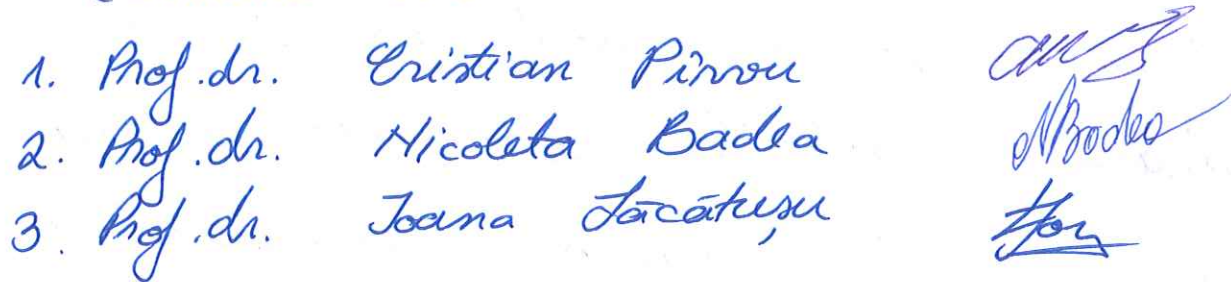 1. Prof. dr. Cristian Pîrvu
2. Prof. dr. Nicoleta Badea NBadea
3. Prof. dr. Ioana Lăcătușu